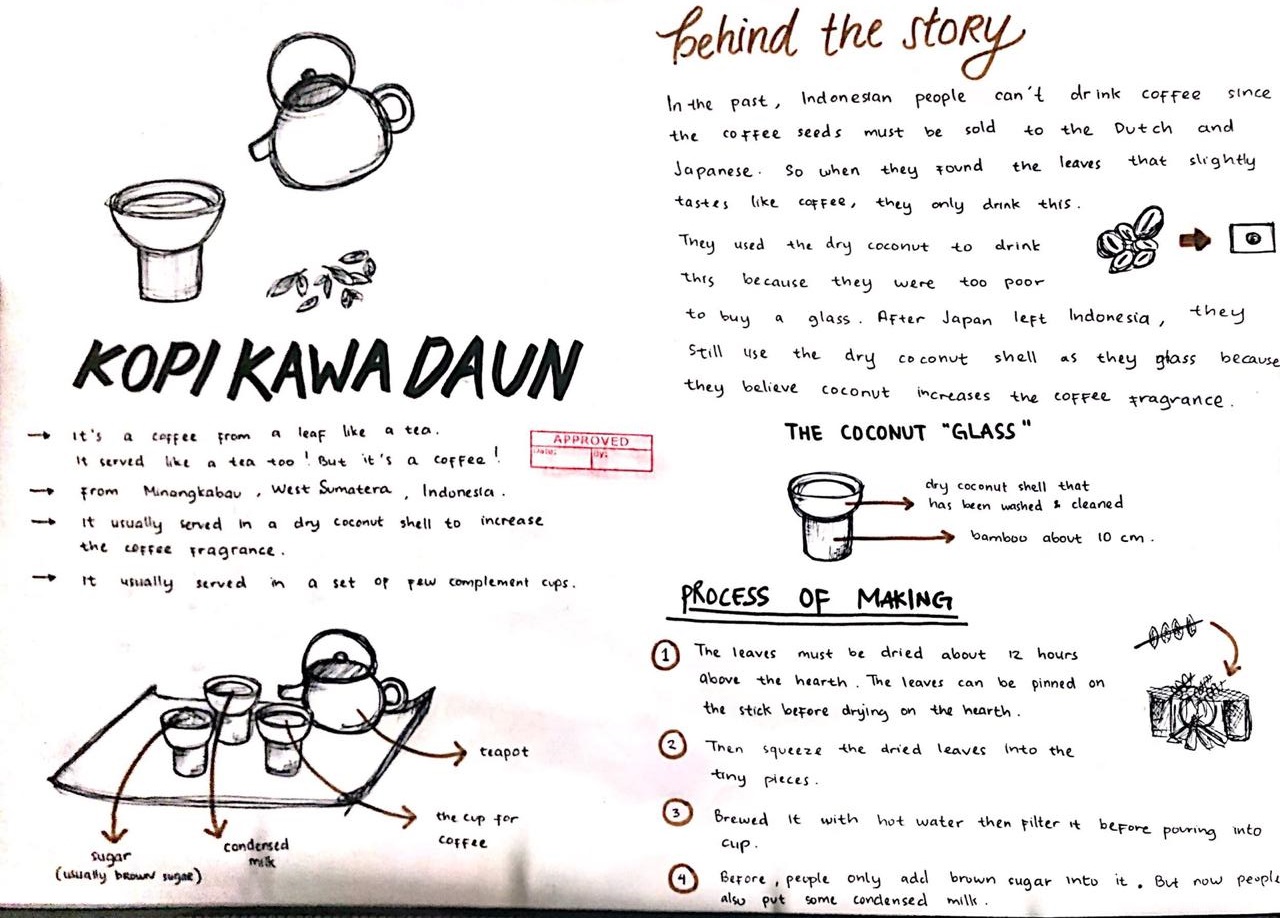 KOPI KAWA DAUN
→ It's a coffee from a leaf like a tea.
It served like a tea too! But it's a coffee!
→ From Minangkabau, West Sumatera, Indonesia.
→ It usually served in a dry coconut shell to increase
the coffee fragrance.
→ It usually served in a set of few complement cups.
APPROVED
teapot
the cup for
coffee
condensed
milk
sugar
(usually brown sugar)
behind the story
In the past, Indonesian people can't drink coffee since
the coffee seeds must be sold to the Dutch and
Japanese. So when they found the leaves that slightly
tastes like coffee, they only drink this.
They used the dry coconut to drink
this because they were too poor
to buy a glass. After Japan left Indonesia, they
still use the dry coconut shell as they glass because
they believe coconut increases the coffee fragrance.
THE COCONUT "GLASS"
dry coconut shell that
has been washed & cleaned
bamboo about 10 cm.
PROCESS OF MAKING
1 The leaves must be dried about 12 hours
above the hearth. The leaves can be pinned on
the stick before drying on the hearth.
2 Then squeeze the dried leaves into the
tiny pieces.
3 Brewed it with hot water then filter it before pouring into
cup.
4 Before, people only add brown sugar into it. But now people
also put some condensed milk.